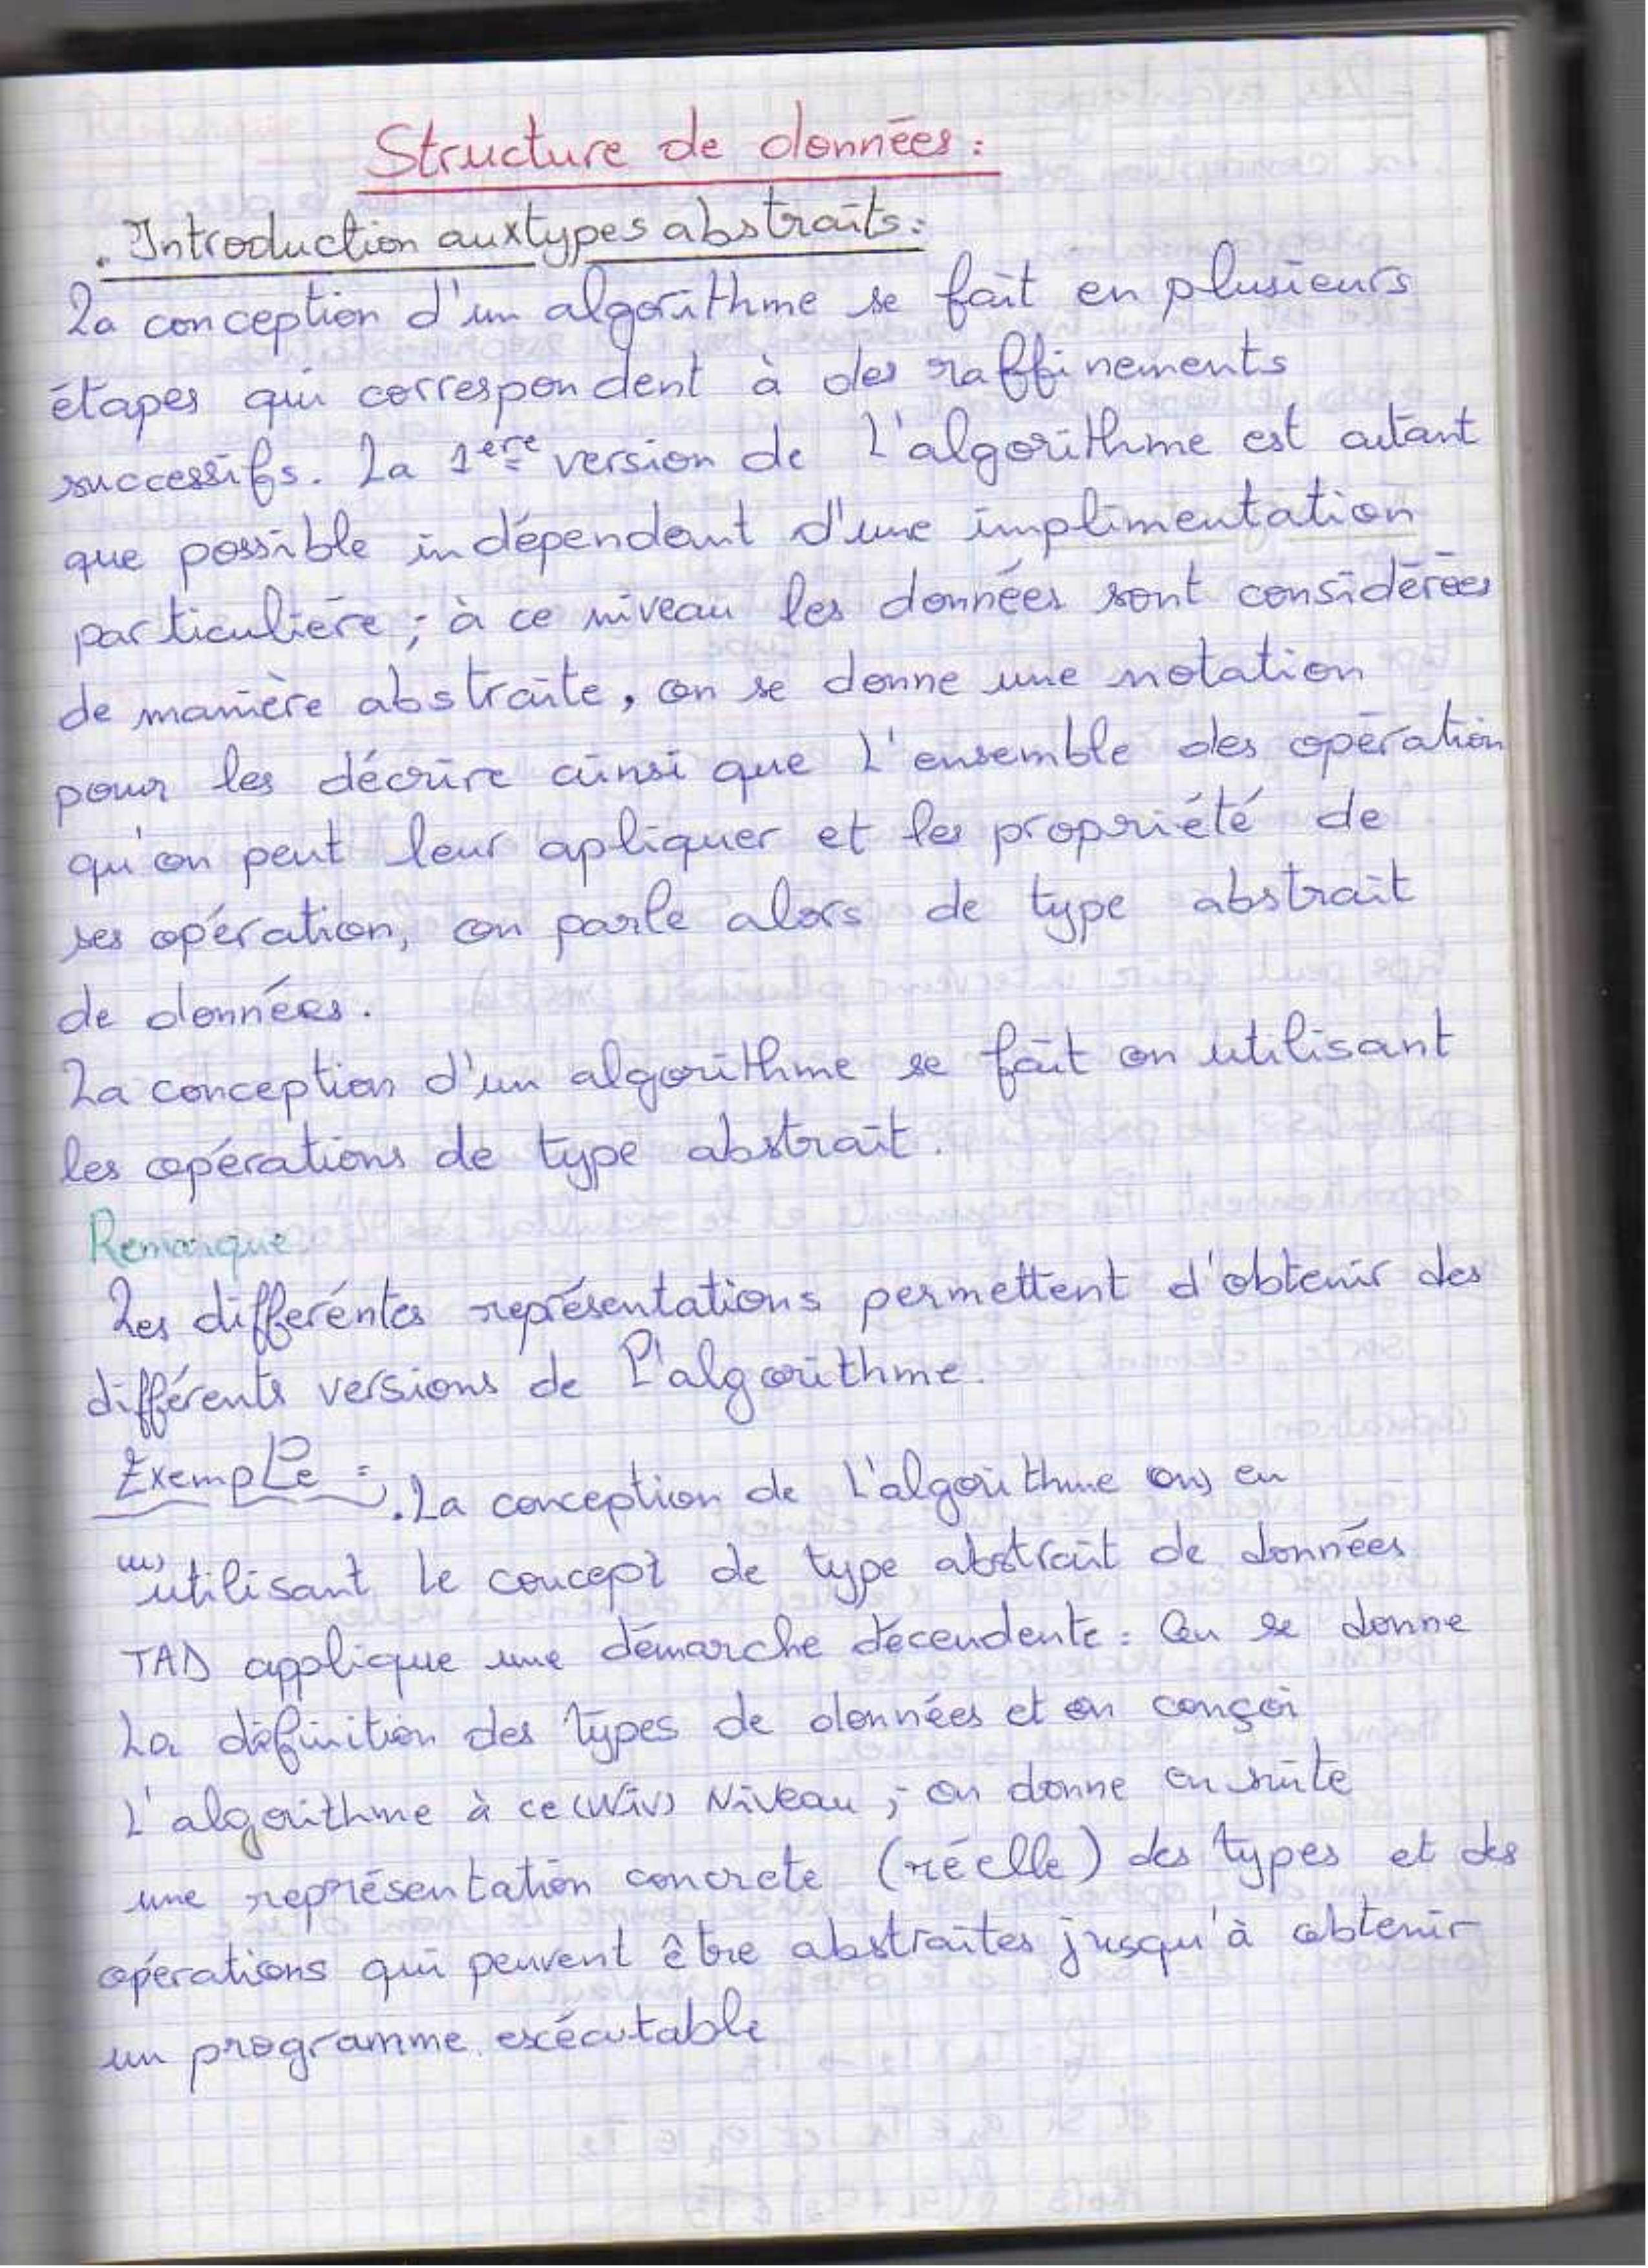 Structure de données :
. Introduction aux types abstraits :
La conception d'un algorithme se fait en plusieurs
étapes qui correspondent à des raffinements
successifs. La 1ère version de l'algorithme est autant
que possible indépendant d'une implimentation
particulière ; à ce niveau les données sont considérées
de manière abstraite, on se donne une notation
pour les décrire ainsi que l'ensemble des opération
qu'on peut leur apliquer et les propriété de
ses opération, on parle alors de type abstrait
de données.
La conception d'un algorithme se fait on utilisant
les opérations de type abstrait.
Remarque
Les différéntes représentations permettent d'obtenir des
différents versions de l'algorithme.
Exemple : . La conception de l'algorithme (on) en
utilisant le concept de type abstrait de données
TAD applique une démarche décendente : On se donne
La définition des types de données et on conçoi
L'algorithme à ce (Niv) Niveau ; on donne ensuite
une représentation concrete (réelle) des types et des
opérations qui peuvent être abstraites jusqu'à obtenir
un programme excécutable